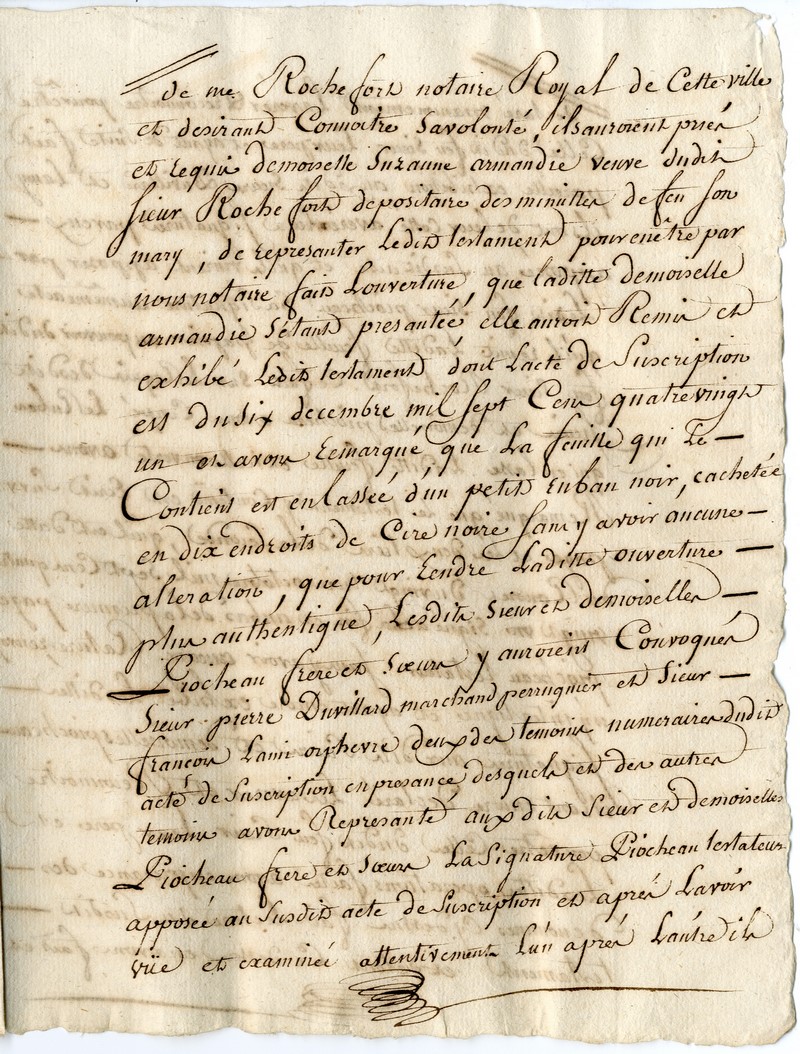 de me Rochefort notaire Royal de Cette ville
et desirant Connoitre savolonté, ils auroient priés
et requis demoiselle Suzanne armandie veuve dudit
sieur Rochefort depositaire des minuttes de feu son
mary, de represanter Ledit testament pour enêtre par
nous notaire fait Louverture, que laditte demoiselle
armandie s'étant presantée, elle auroit Remis et
exhibé Ledit testament dont Lacte de Suscription
est du six decembre mil sept Cens quatrevingt
un et avons remarqué que La feuille qui Le —
Contient est enlassée d'un petit ruban noir, cachetée
en dix endroits de Cire noire sans y avoir aucune —
alteration, que pour rendre Laditte ouverture —
plus authentique, Lesdits sieur et demoiselles —
Piocheau frere et sœurs y auroient Convoqués
sieur pierre Duvillard marchand perruquier et sieur —
françois Lami orphevre deux des temoins numeraires dudit
acte de Suscription en presance desquels et des autres
temoins avons Represanté aux dits sieur et demoiselles
Piocheau frere et sœurs La Signature Piocheau testateur
apposée au susdit acte de Suscription et aprés Lavoir
vüe et examinée attentivement L'un aprés L'autre ils